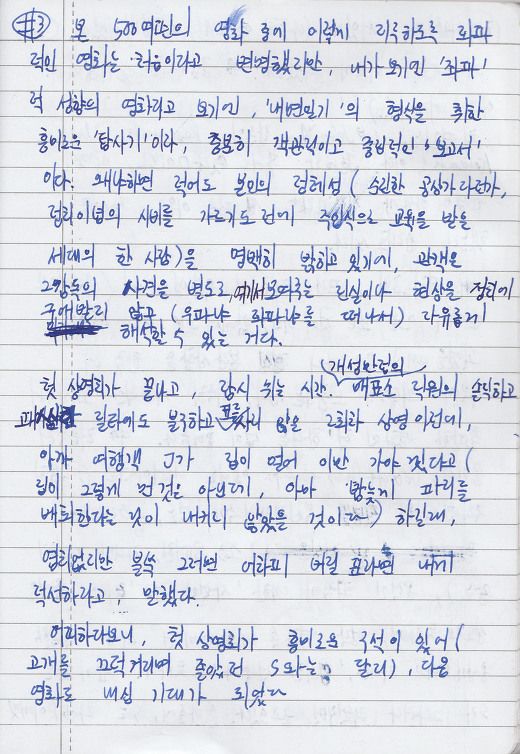 #3 본 500여편의 영화 중에 이렇게 리륵하도록 좌파
적인 영화는 '처음'이라고 변명했지만, 내가 보기엔 '좌파'
적 성향의 영화라고 보기엔, '내면일기'의 형식을 취한
흥미로운 '답사기'이자, 충분히 객관적이고 중립적인 '보고서'
이다. 왜냐하면 적어도 본인의 정체성(순진한 공상가다던가,
정치이념의 시비를 가르기도 전에 주입식으로 교육을 받은
세대의 한 사람)을 명백히 밝히고 있기에, 관객은
그 감독의 사견을 별도로, 여기서 보여주는 진실이나 현상을 정치에
구애받지 않고 (우파냐 좌파냐를 떠나서) 자유롭게
해석할 수 있는 거다.
첫 상영회가 끝나고, 잠시 쉬는 시간. (개성만점의) 매표소 직원의 손짓하고
질타에도 불구하고 표를 사지 않은 2회차 상영 이전에,
아까 여행객 J가 집이 멀어 이만 가야겠다고 (
집이 그렇게 먼 것은 아닌데, 아마 밤늦게 파리를
배회한다는 것이 내키지 않았을 것이다) 하길래,
염치없지만 불쑥 그러면 어차피 버릴 표라면 내게
적선하라고, 말했다.
어찌하다보니, 첫 상영회가 흥미로운 구석이 있어 (
고개를 끄덕거리며 졸았던 S와는 달리), 다음
영화도 내심 기대가 되었다